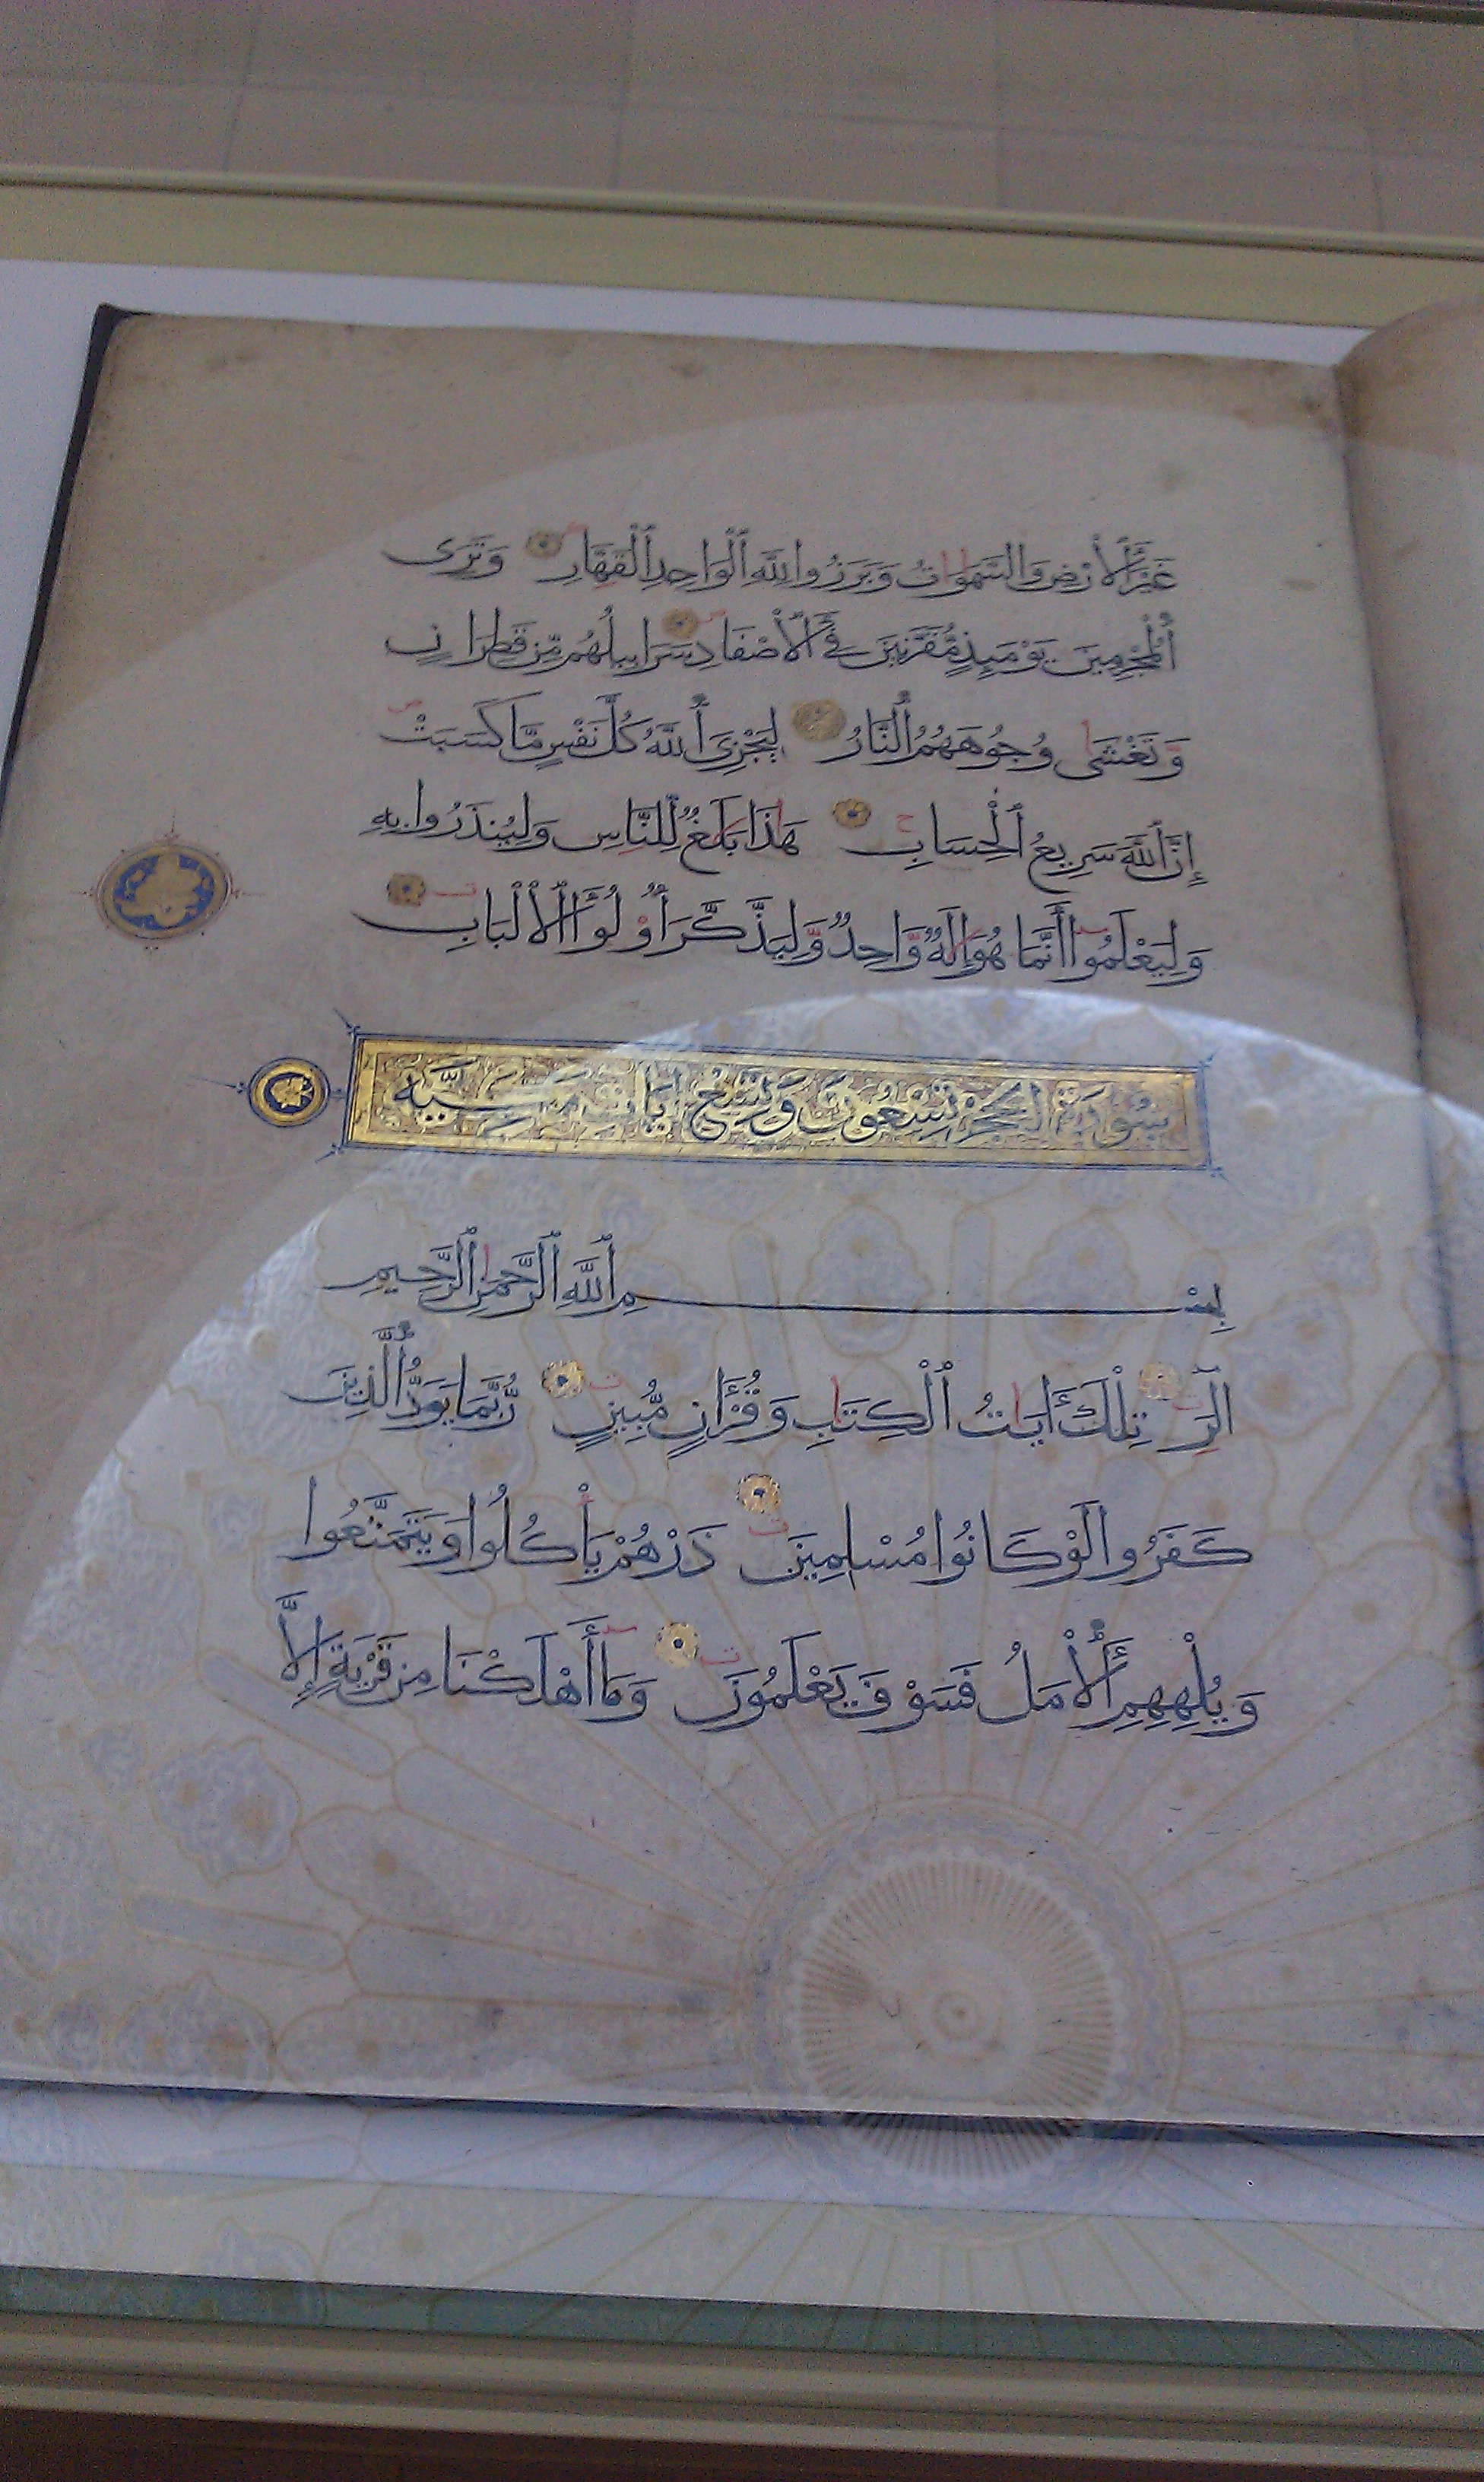 غَيْرَ ٱلْأَرْضِ وَالسَّمَوَاتُ وَبَرَزُوا لِلَّهِ ٱلْوَاحِدِ ٱلْقَهَّارِ وَتَرَى
ٱلْمُجْرِمِينَ يَوْمَئِذٍ مُّقَرَّنِينَ فِي ٱلْأَصْفَادِ سَرَابِيلُهُم مِّن قَطِرَانٍ
وَّتَغْشَى وُجُوهَهُمُ ٱلنَّارُ لِيَجْزِىَ ٱللَّهُ كُلَّ نَفْسٍ مَّا كَسَبَتْ
إِنَّ ٱللَّهَ سَرِيعُ ٱلْحِسَابِ هَٰذَا بَلَٰغٌ لِّلنَّاسِ وَلِيُنذَرُوا بِهِ
وَلِيَعْلَمُوا أَنَّمَا هُوَ إِلَٰهٌ وَّاحِدٌ وَّلِيَذَّكَّرَ أُوْلُوا ٱلْأَلْبَابِ
سُورَةُ الحِجْرِ تِسْعُونَ وَتِسْعُ آيَاتٍ مَكِّيَّه
بِسْمِ ٱللَّهِ ٱلرَّحْمَٰنِ ٱلرَّحِيمِ
الٓرَ تِلْكَ ءَايَاتُ ٱلْكِتَابِ وَقُرْءَانٍ مُّبِينٍ رُّبَّمَا يَوَدُّ ٱلَّذِينَ
كَفَرُوا لَوْ كَانُوا مُسْلِمِينَ ذَرْهُمْ يَأْكُلُوا وَيَتَمَتَّعُوا
وَيُلْهِهِمِ ٱلْأَمَلُ فَسَوْفَ يَعْلَمُونَ وَمَا أَهْلَكْنَا مِن قَرْيَةٍ إِلَّا